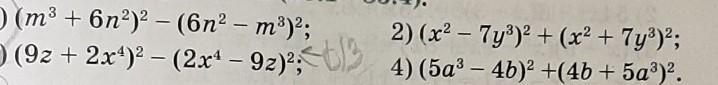 ) (m³ + 6n²)² − (6n² − m³)²; 2) (x² − 7y³)² + (x² + 7y³)²;
) (9z + 2x⁴)² − (2x⁴ − 9z)²; 4) (5a³ − 4b)² +(4b + 5a³)².